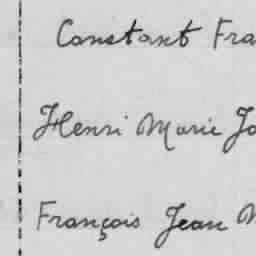 Constant Fra
Henri Marie Jo
François Jean M